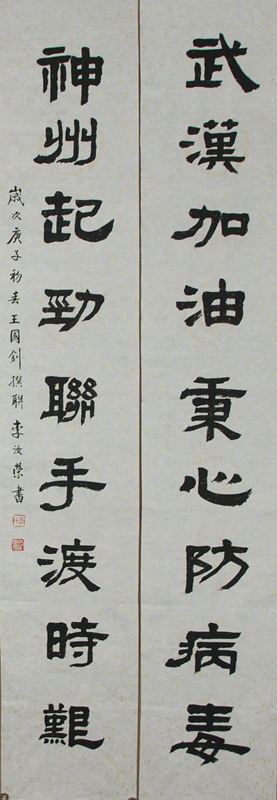 武漢加油秉心防病毒
神州起勁聯手渡時艱
歲次庚子初春王國釗撰聯李汝榮書